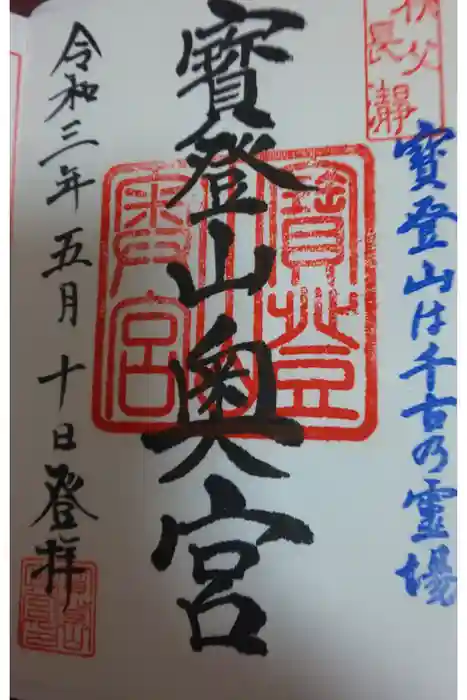 秩父
長瀞
寳登山は千古乃霊場
寳登山奥宮
寳登山奥宮
令和三年五月十日登拝